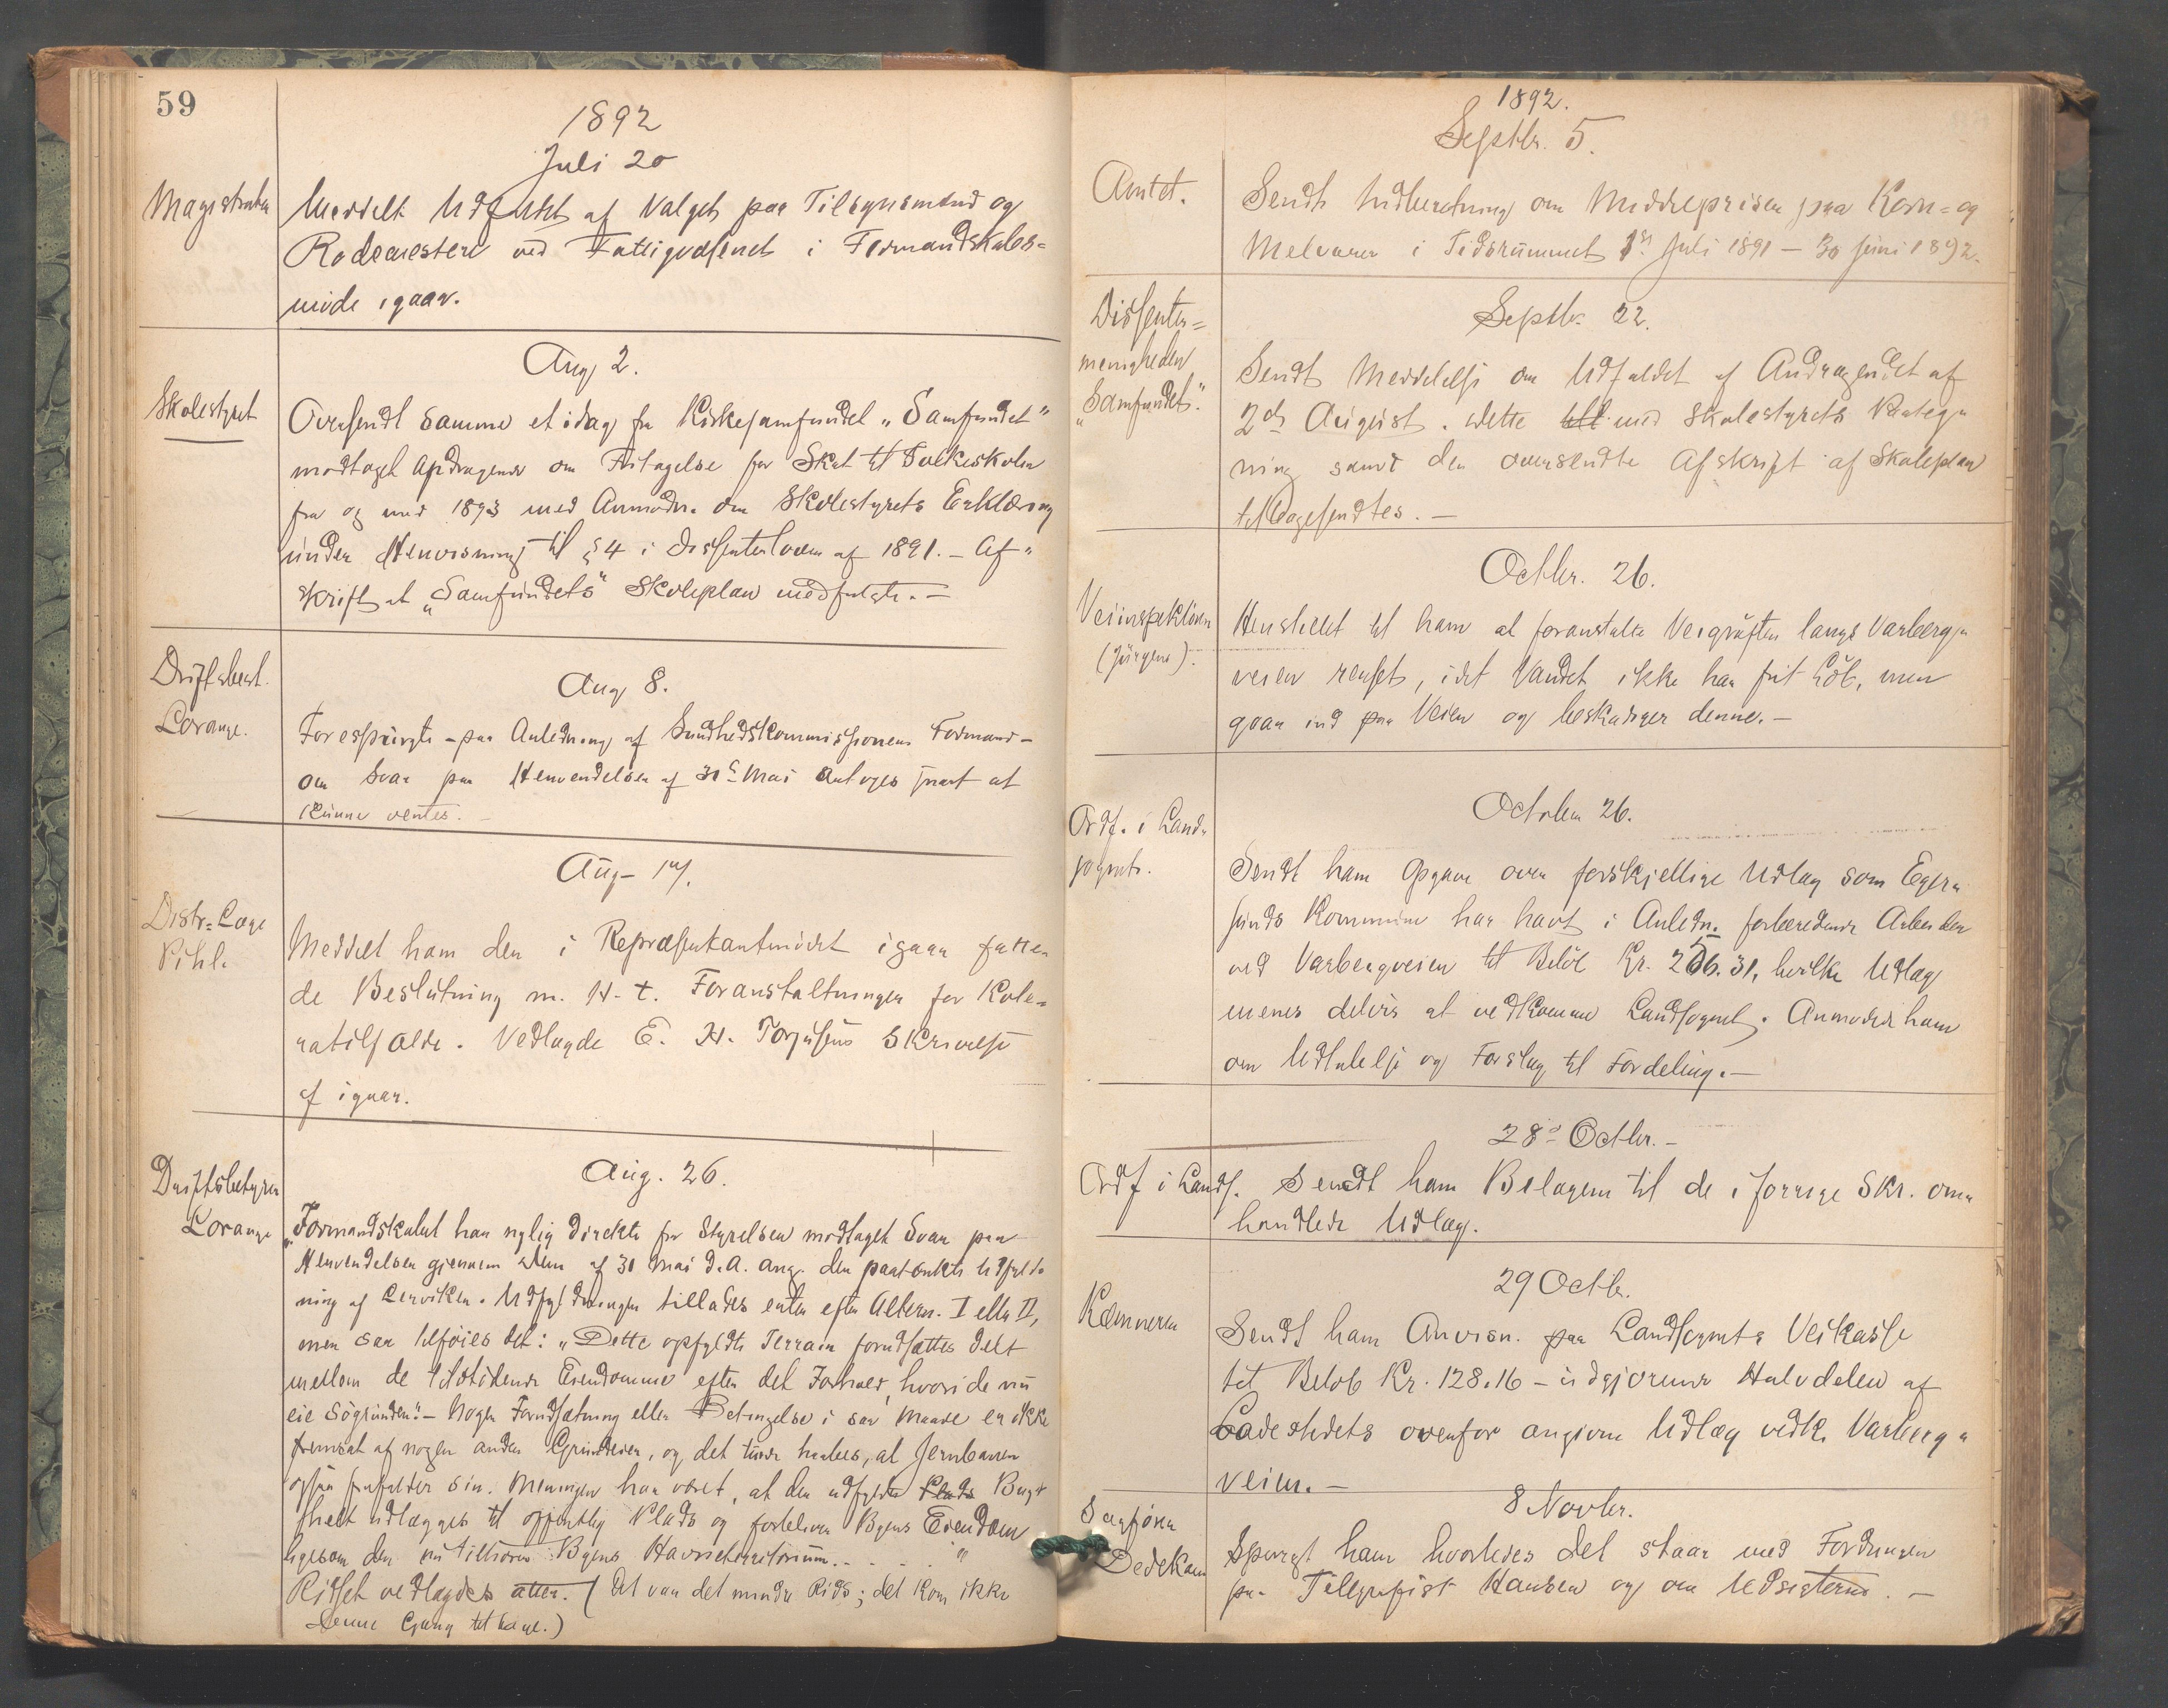 59
1892
Juli 20
Magistraten
Meddelt Udfaldet af Valget paa Tilsynsmænd og
Rodemestere ved Fattigvæsenet i Formandskabs-
møde igaar.
Aug 2.
Skolestyret
Oversendt samme et idag fra Kirkesamfundet „Samfundet"
modtaget Andragende om Fritagelse for Skat til Folkeskolen
fra og med 1893 med Anmodn. om Skolestyrets Erklæring
under Henvisning til § 4 i Dissenterloven af 1891. – Af-
skrift af „Samfundets" Skoleplan medfulgte. –
Driftsbest.
Lorange.
Aug 8.
Forespurgte – paa Anledning af Sundhedskommissionens Formand –
om Svar paa Henvendelsen af 30te Mai antages snart at
kunne ventes. –
Aug – 17.
Distr=Læge
Pihl.
Meddelt ham den i Repræsentantmødet igaar fatte-
de Beslutning m. H. t. Foranstaltninger for Kole-
ratilfælde. Vedlagde E. H. Torjusens Skrivelse
af igaar.
Aug. 26.
Driftsbestyrer
Lorange
„Formandskabet har nylig direkte fra Styrelsen modtaget Svar paa
Henvendelsen gjennem Dem af 30 Mai d.A. ang. den paatænkte Udfyld-
ning af Lerviken. Udfyldningen tillades enten efter Altern. I eller II,
men saa tilføies det: „Dette opfyldte Terrain forudsættes delt
mellem de tilstødende Eiendomme efter det Forhold, hvori de nu
eie Søgrunden." – Nogen Forudsætning eller Betingelse i saa Maade er ikke
fremsat af nogen anden Grundeier, og det turde haabes, at Jernbanen
ogsaa frafalder sin. Meningen har været, at den udfyldte Plads Bugt
helt udlægges til offentlig Plads og forbliver Byens Eiendom
ligesom den nu tilhører Byens Havneterritorium. - - - - "
Ridset vedlagdes atter. (Det var det mindre Rids; det kom ikke
denne Gang tilbage.)
1892.
Septbr. 5.
Amtet.
Sendt Indberetning om Middelprisen paa Korn= og
Melvarer i Tidsrummet 1ste Juli 1891 – 30 Juni 1892.
Septbr. 22.
Dissenter=
menigheden
„Samfundet".
Sendt Meddelelse om Udfaldet af Andragendet af
2den August. Dette med Skolestyrets Paateg-
ning samt den oversendte Afskrift af Skoleplan
tilbagesendtes. –
Octbr. 26.
Veiinspektøren
(Jürgens).
Henstillet til ham at foranstalte Veigrøften langs Varbergs-
veien renset, idet Vandet ikke har frit Løb, men
gaar ind paa Veien og beskadiger denne. –
October 26.
Ordf. i Land-
sognet.
Sendt ham Opgave over forskjellige Udlæg som Eger-
sunds Kommune har havt i Anledn. forberedende Arbeider
ved Varbergveien til Beløb Kr. 256.31, hvilke Udlæg
menes delvis at vedkomme Landsognet. Anmodede ham
om Udtalelse og Forslag til Fordeling. –
28de Octbr. –
Ordf i Lands. Sendt ham Belagene til de i forrige Skr. om-
handlede Udlæg.
29 Octbr.
Kæmneren
Sendt ham Anvisn. paa Landsognets Veikasse
til Beløb Kr. 128.16 – udgjørende Halvdelen af
Ladestedets ovenfor angivne Udlæg vedk. Varberg-
veien. –
8 Novbr.
Sagfører
Dedekam
Spurgt ham hvorledes det staar med Fordringen
paa Telegrafist Hansen og om Udsigterne. –